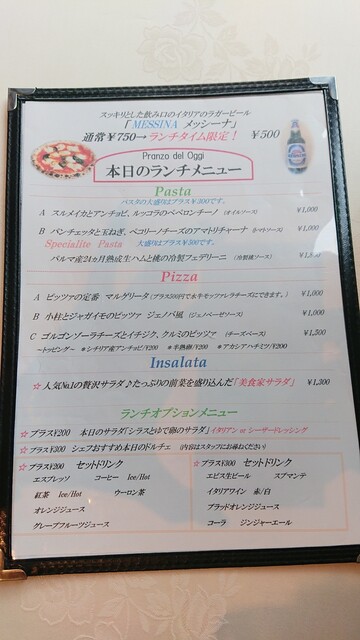 スッキリとした飲み口のイタリアのラガービール
「MESSINA メッシーナ」
通常￥750→ランチタイム限定！ ￥500
Pranzo del Oggi
本日のランチメニュー
Pasta
パスタの大盛りはプラス￥300です。
A スルメイカとアンチョビ、ルッコラのペペロンチーノ (オイルソース) ￥1,000
B パンチェッタと玉ねぎ、ペコリーノチーズのアマトリチャーナ (トマトソース) ￥1,000
Specialite Pasta 大盛りはプラス￥500です。
パルマ産24ヵ月熟成生ハムと桃の冷製フェデリーニ (冷製桃ソース)
Pizza
A ピッツァの定番 マルゲリータ (プラス500円で水牛モッツァレラチーズにできます。) ￥1,000
B 小柱とジャガイモのピッツァ ジェノバ風 (ジェノベーゼソース) ￥1,000
C ゴルゴンゾーラチーズとイチジク、クルミのピッツァ (チーズベース) ￥1,500
～トッピング～ ＊シチリア産アンチョビ/￥200 ＊半熟卵/￥200 ＊アカシアハチミツ/￥200
Insalata
☆人気№1の贅沢サラダ♪たっぷりの前菜を盛り込んだ「美食家サラダ」 ￥1,300
ランチオプションメニュー
☆プラス￥200 本日のサラダ「シラスとゆで卵のサラダ」イタリアン or シーザードレッシング
☆プラス￥300 シェフおすすめ本日のドルチェ (内容はスタッフにお尋ねください)
☆プラス￥200 セットドリンク
エスプレッソ コーヒー Ice/Hot
紅茶 Ice/Hot ウーロン茶
オレンジジュース
グレープフルーツジュース
☆プラス￥300 セットドリンク
エビス生ビール スプマンテ
イタリアワイン 赤/白
ブラッドオレンジジュース
コーラ ジンジャーエール